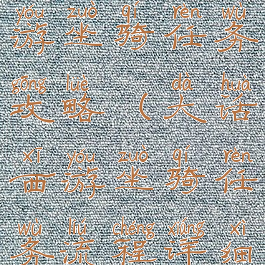 yóu zuò qí rèn wù
游坐骑任务
gōng lüè dà huà
攻略(大话
xī yóu zuò qí rèn
西游坐骑任
wù liú chéng xiáng xì
务流程详细